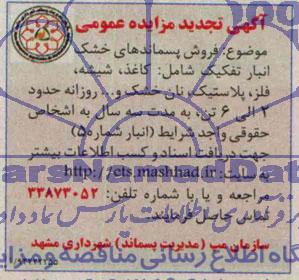 آگهی تجدید مزایده عمومی
موضوع: فروش پسماندهای خشک
انبار تفکیک شامل: کاغذ، شیشه،
فلز، پلاستیک، نان خشک و... روزانه حدود
۲ الی ۶ تن، به مدت سه سال به اشخاص
حقوقی واجد شرایط (انبار شماره ۵)
جهت دریافت اسناد و کسب اطلاعات بیشتر
به سایت: http://ets.mashhad.ir
مراجعه و یا با شماره تلفن: ۳۳۸۷۳۰۵۲
تماس حاصل فرمایند.
سازمان مپ (مدیریت پسماند) شهرداری مشهد